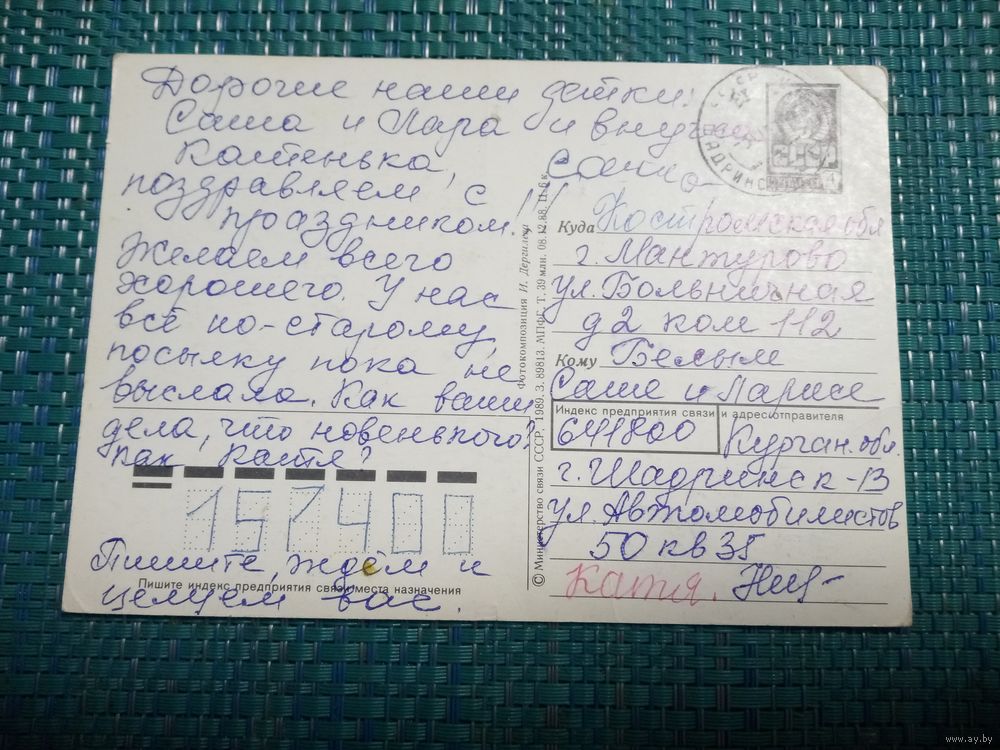 Дорогие наши детки:
Саша и Лара и внучка
Катенька,
поздравляем с
праздником!!!
Желаем всего
хорошего. У нас
всё по-старому,
посылку пока не
выслала. Как ваши
дела, что новенького?
Как Катя?
157400
Пишите, ждём и
целуем вас.
Пишите индекс предприятия связи места назначения
© Министерство связи СССР. 1989. З. 89813. МПФГ. Т. 39 млн. 08.12.88. Ц. 6 к.
Фотокомпозиция И. Дергилёва
СССР
Куда Костромская обл
г. Мантурово
ул. Больничная
д 2 ком 112
Кому Белым
Саше и Ларисе
Индекс предприятия связи и адрес отправителя
641800 Курган. обл.
г. Шадринск-13
ул. Автомобилистов
50 кв 35
Катя.
www.ay.by